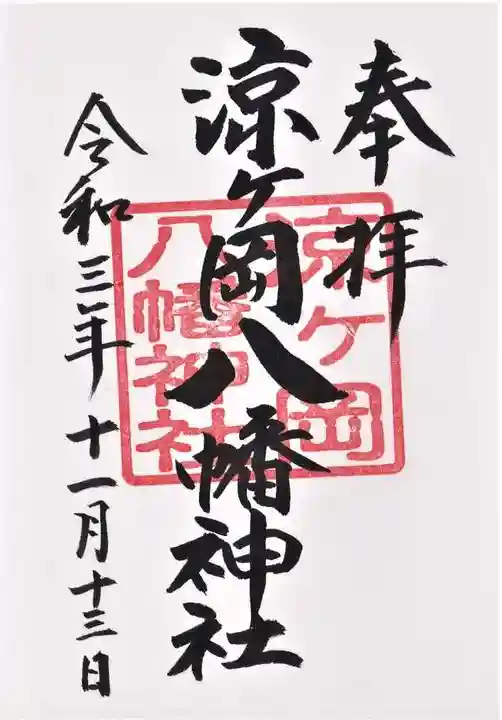 奉拝
涼ケ岡八幡神社
令和三年十一月十三日
涼ケ岡
八幡神社